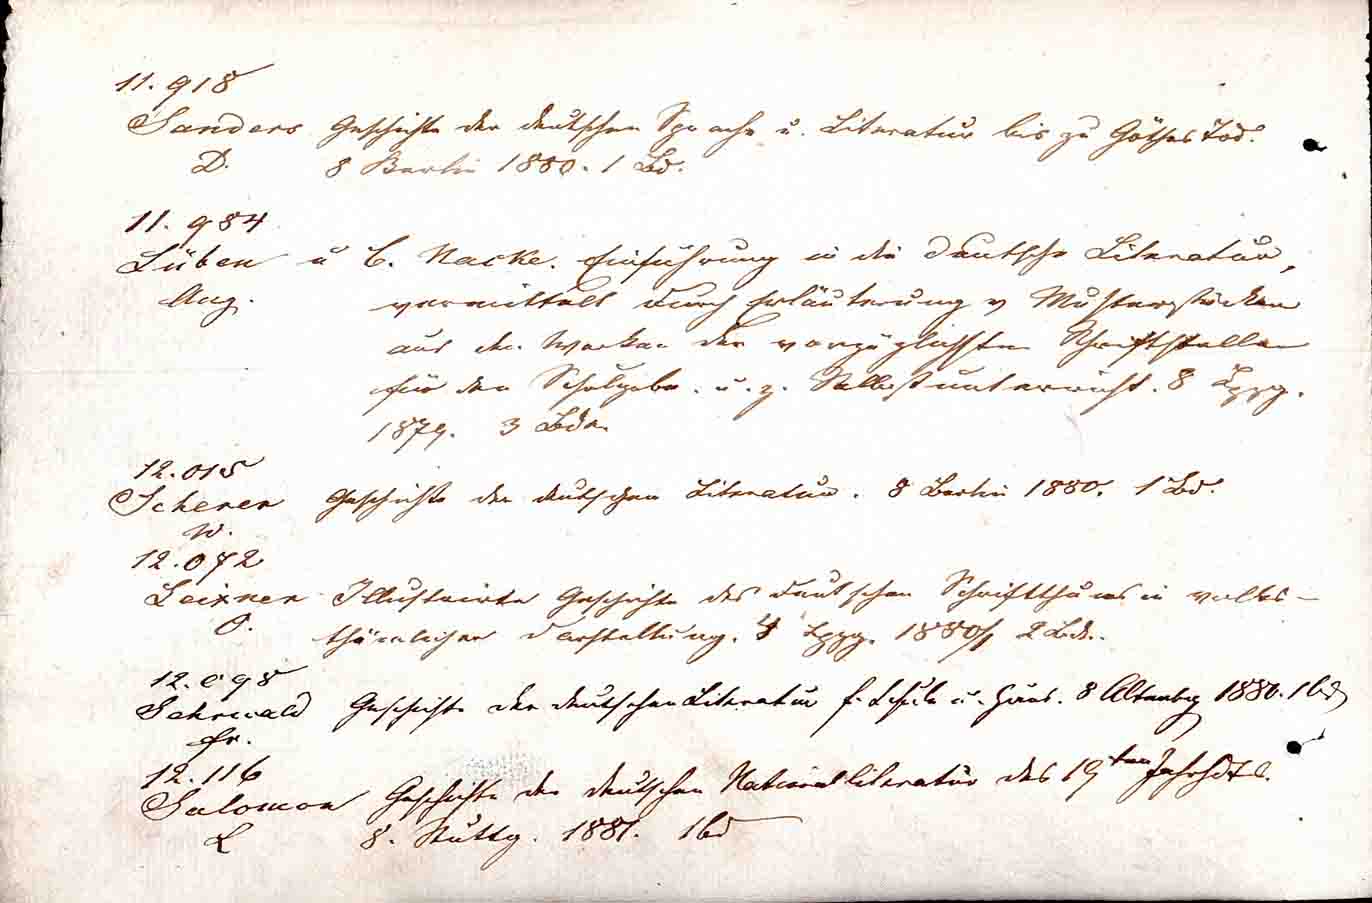 11.918
Sanders Geschichte der deutschen Sprache u. Literatur bis zu Göthes Tod.
D. 8 Berlin 1880. 1 Bd.
11.984
Lüben u C. Nacke. Einführung in die deutsche Literatur,
Aug. vermittelt durch Erläuterung v Musterstücken
aus den Werken der vorzüglichsten Schriftsteller
für den Schulgebr. u. z. Selbstunterricht. 8 Lpzg.
1879. 3 Bde.
12.015
Scherer Geschichte der deutschen Literatur. 8 Berlin 1880. 1 Bd.
W.
12.072
Leixner Illustrirte Geschichte des deutschen Schriftthums in volks-
O. thümlicher Darstellung. 4 Lpzg. 1880/1 2 Bde.
12.098
Sehrwald Geschichte der deutschen Literatur f. Schule u. Haus. 8 Altenbg 1880. 1bd
Fr.
12.116
Salomon Geschichte der deutschen Nationalliteratur des 19ten Jahrhdts.
L 8. Stuttg. 1881. 1bd